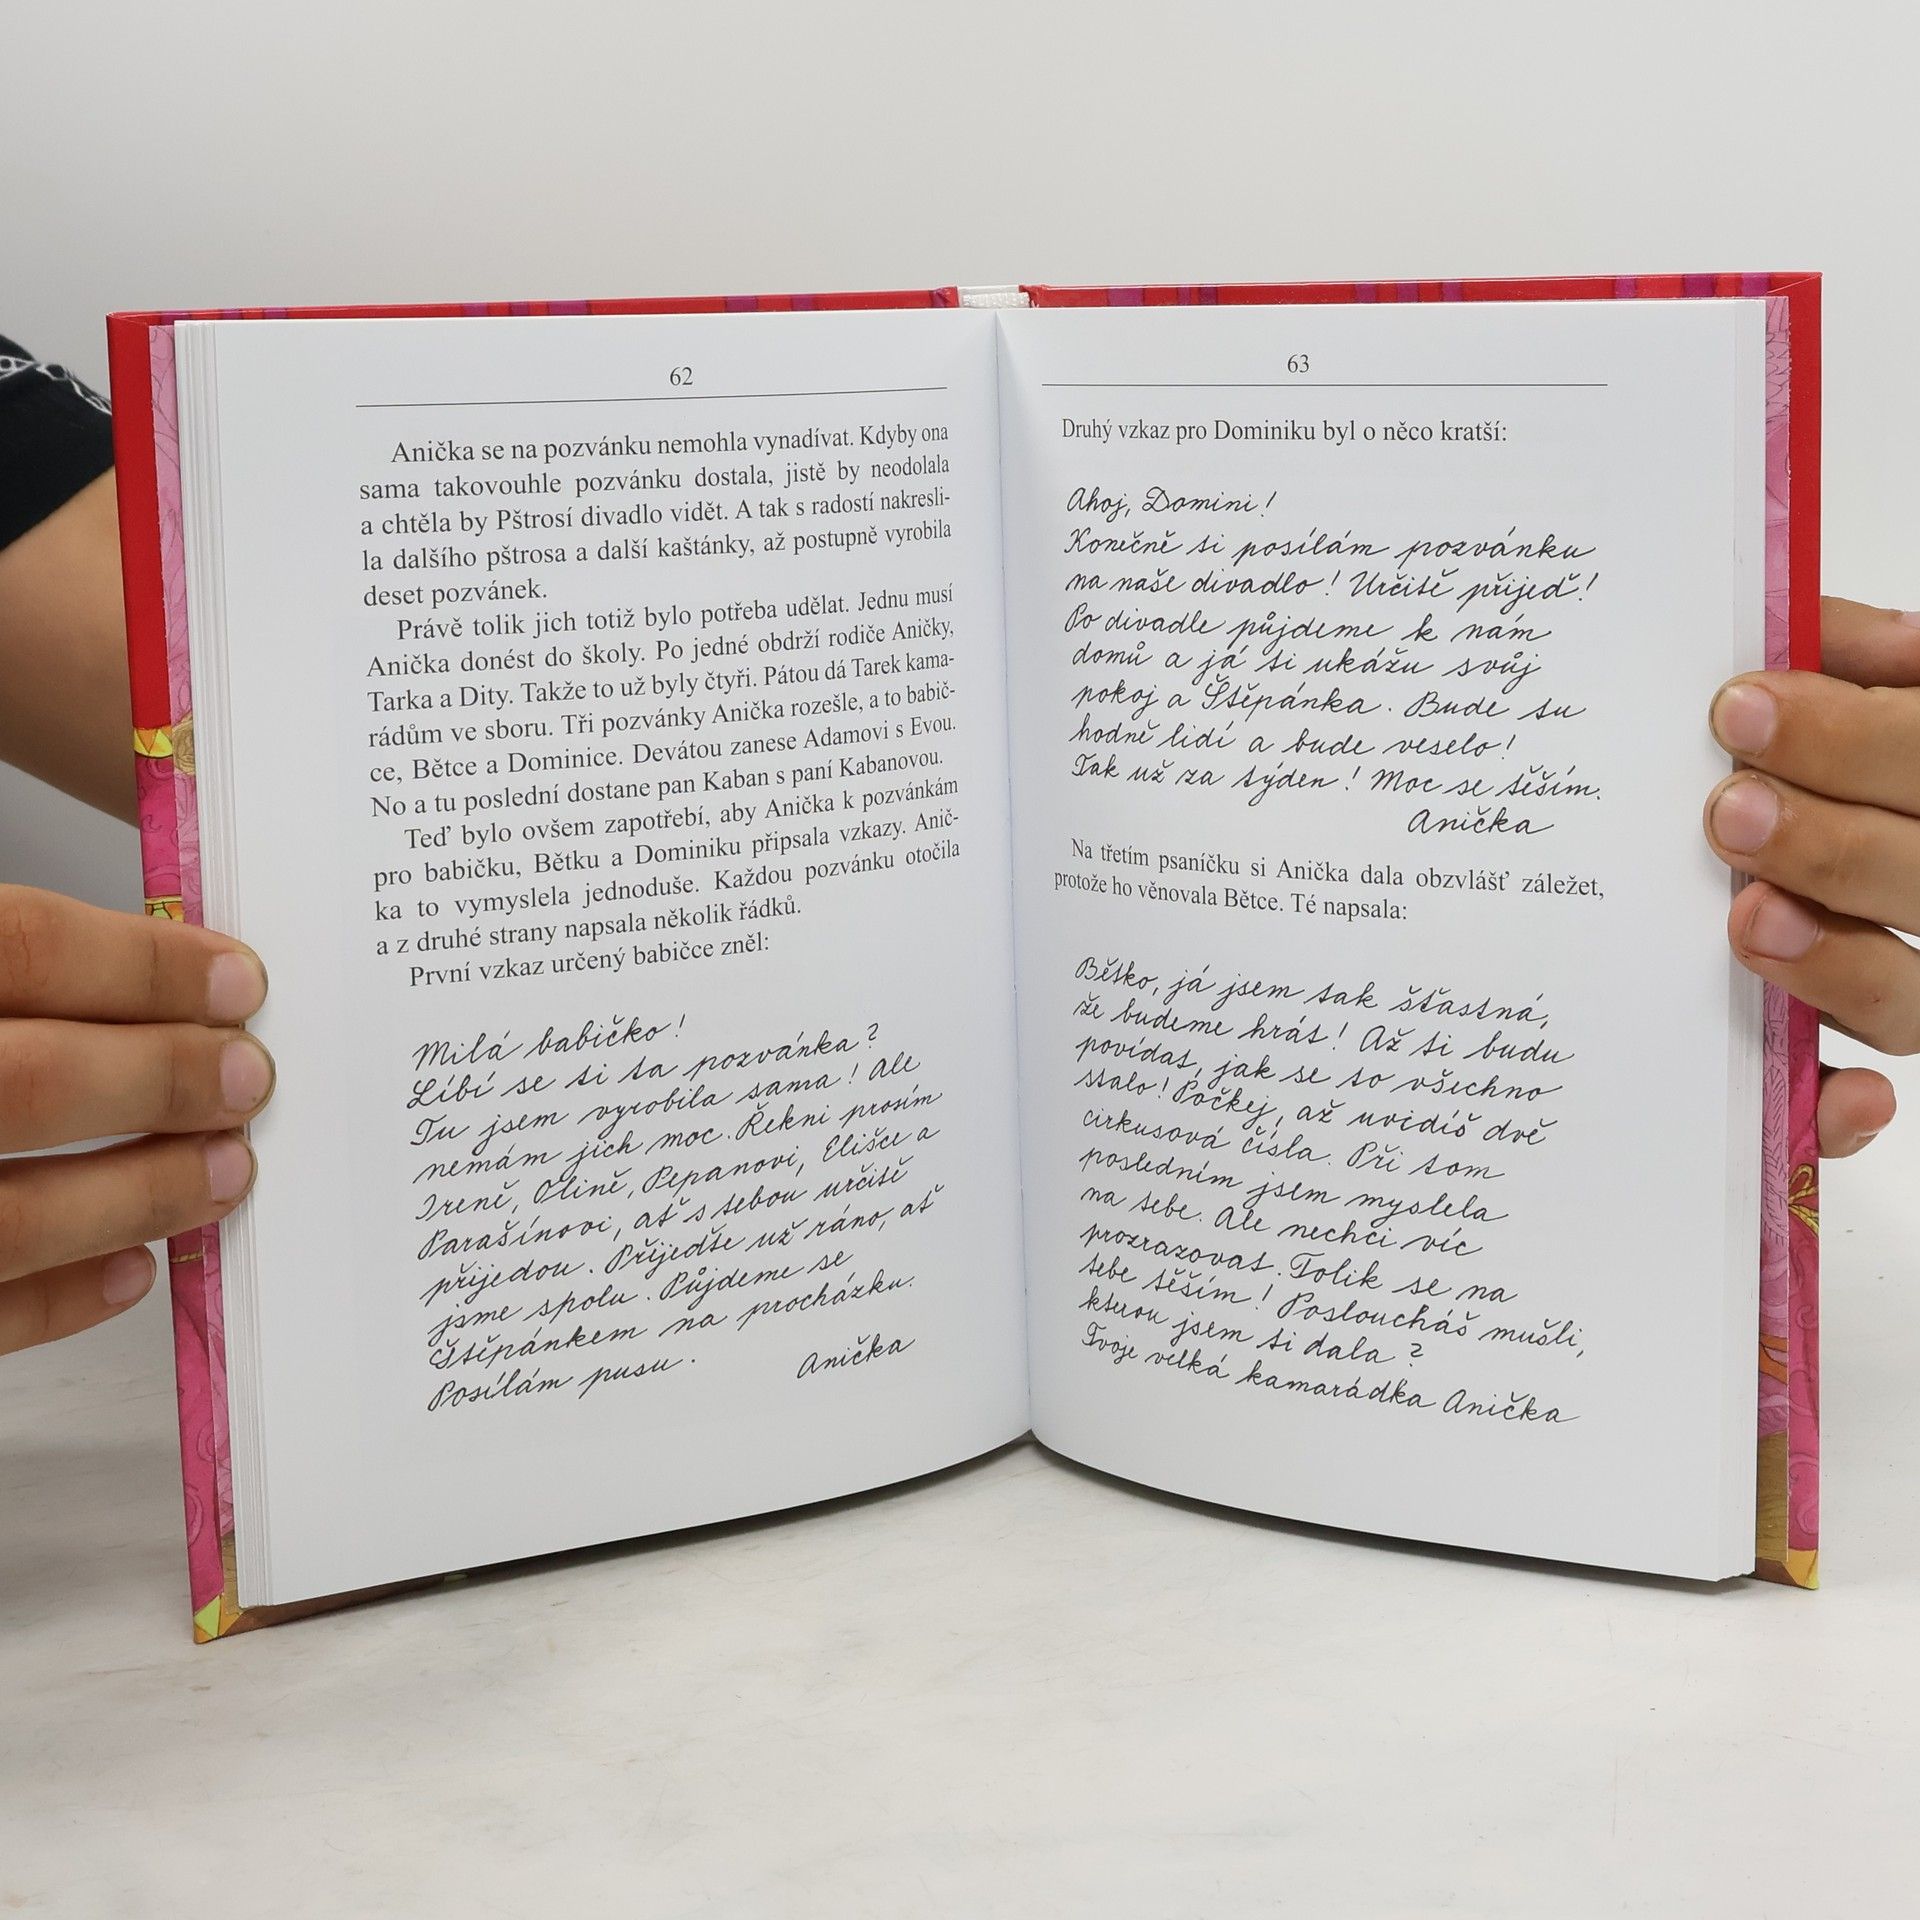 62
Anička se na pozvánku nemohla vynadívat. Kdyby ona
sama takovouhle pozvánku dostala, jistě by neodolala
a chtěla by Pštrosí divadlo vidět. A tak s radostí nakresli-
la dalšího pštrosa a další kaštánky, až postupně vyrobila
deset pozvánek.
Právě tolik jich totiž bylo potřeba udělat. Jednu musí
Anička donést do školy. Po jedné obdrží rodiče Aničky,
Tarka a Dity. Takže to už byly čtyři. Pátou dá Tarek kama-
rádům ve sboru. Tři pozvánky Anička rozešle, a to babič-
ce, Bětce a Dominice. Devátou zanese Adamovi s Evou.
No a tu poslední dostane pan Kaban s paní Kabanovou.
Teď bylo ovšem zapotřebí, aby Anička k pozvánkám
pro babičku, Bětku a Dominiku připsala vzkazy. Anič-
ka to vymyslela jednoduše. Každou pozvánku otočila
a z druhé strany napsala několik řádků.
První vzkaz určený babičce zněl:
Milá babičko!
Líbí se ti ta pozvánka?
Tu jsem vyrobila sama! Ale
nemám jich moc. Řekni prosím
Ireně, Olině, Pepanovi, Elišce a
Parašínovi, ať s tebou určitě
přijedou. Přijeďte už ráno, ať
jsme spolu. Půjdeme se
Štěpánkem na procházku.
Posílám pusu.
Anička
63
Druhý vzkaz pro Dominiku byl o něco kratší:
Ahoj, Domini!
Konečně ti posílám pozvánku
na naše divadlo! Určitě přijeď!
Po divadle půjdeme k nám
domů a já ti ukážu svůj
pokoj a Štěpánka. Bude tu
hodně lidí a bude veselo!
Tak už za týden! Moc se těším.
Anička
Na třetím psaníčku si Anička dala obzvlášť záležet,
protože ho věnovala Bětce. Té napsala:
Bětko, já jsem tak šťastná,
že budeme hrát! Až ti budu
povídat, jak se to všechno
stalo! Počkej, až uvidíš dvě
cirkusová čísla. Při tom
posledním jsem myslela
na tebe. Ale nechci víc
prozrazovat. Tolik se na
tebe těším! Posloucháš mušli,
kterou jsem ti dala?
Tvoje velká kamarádka Anička